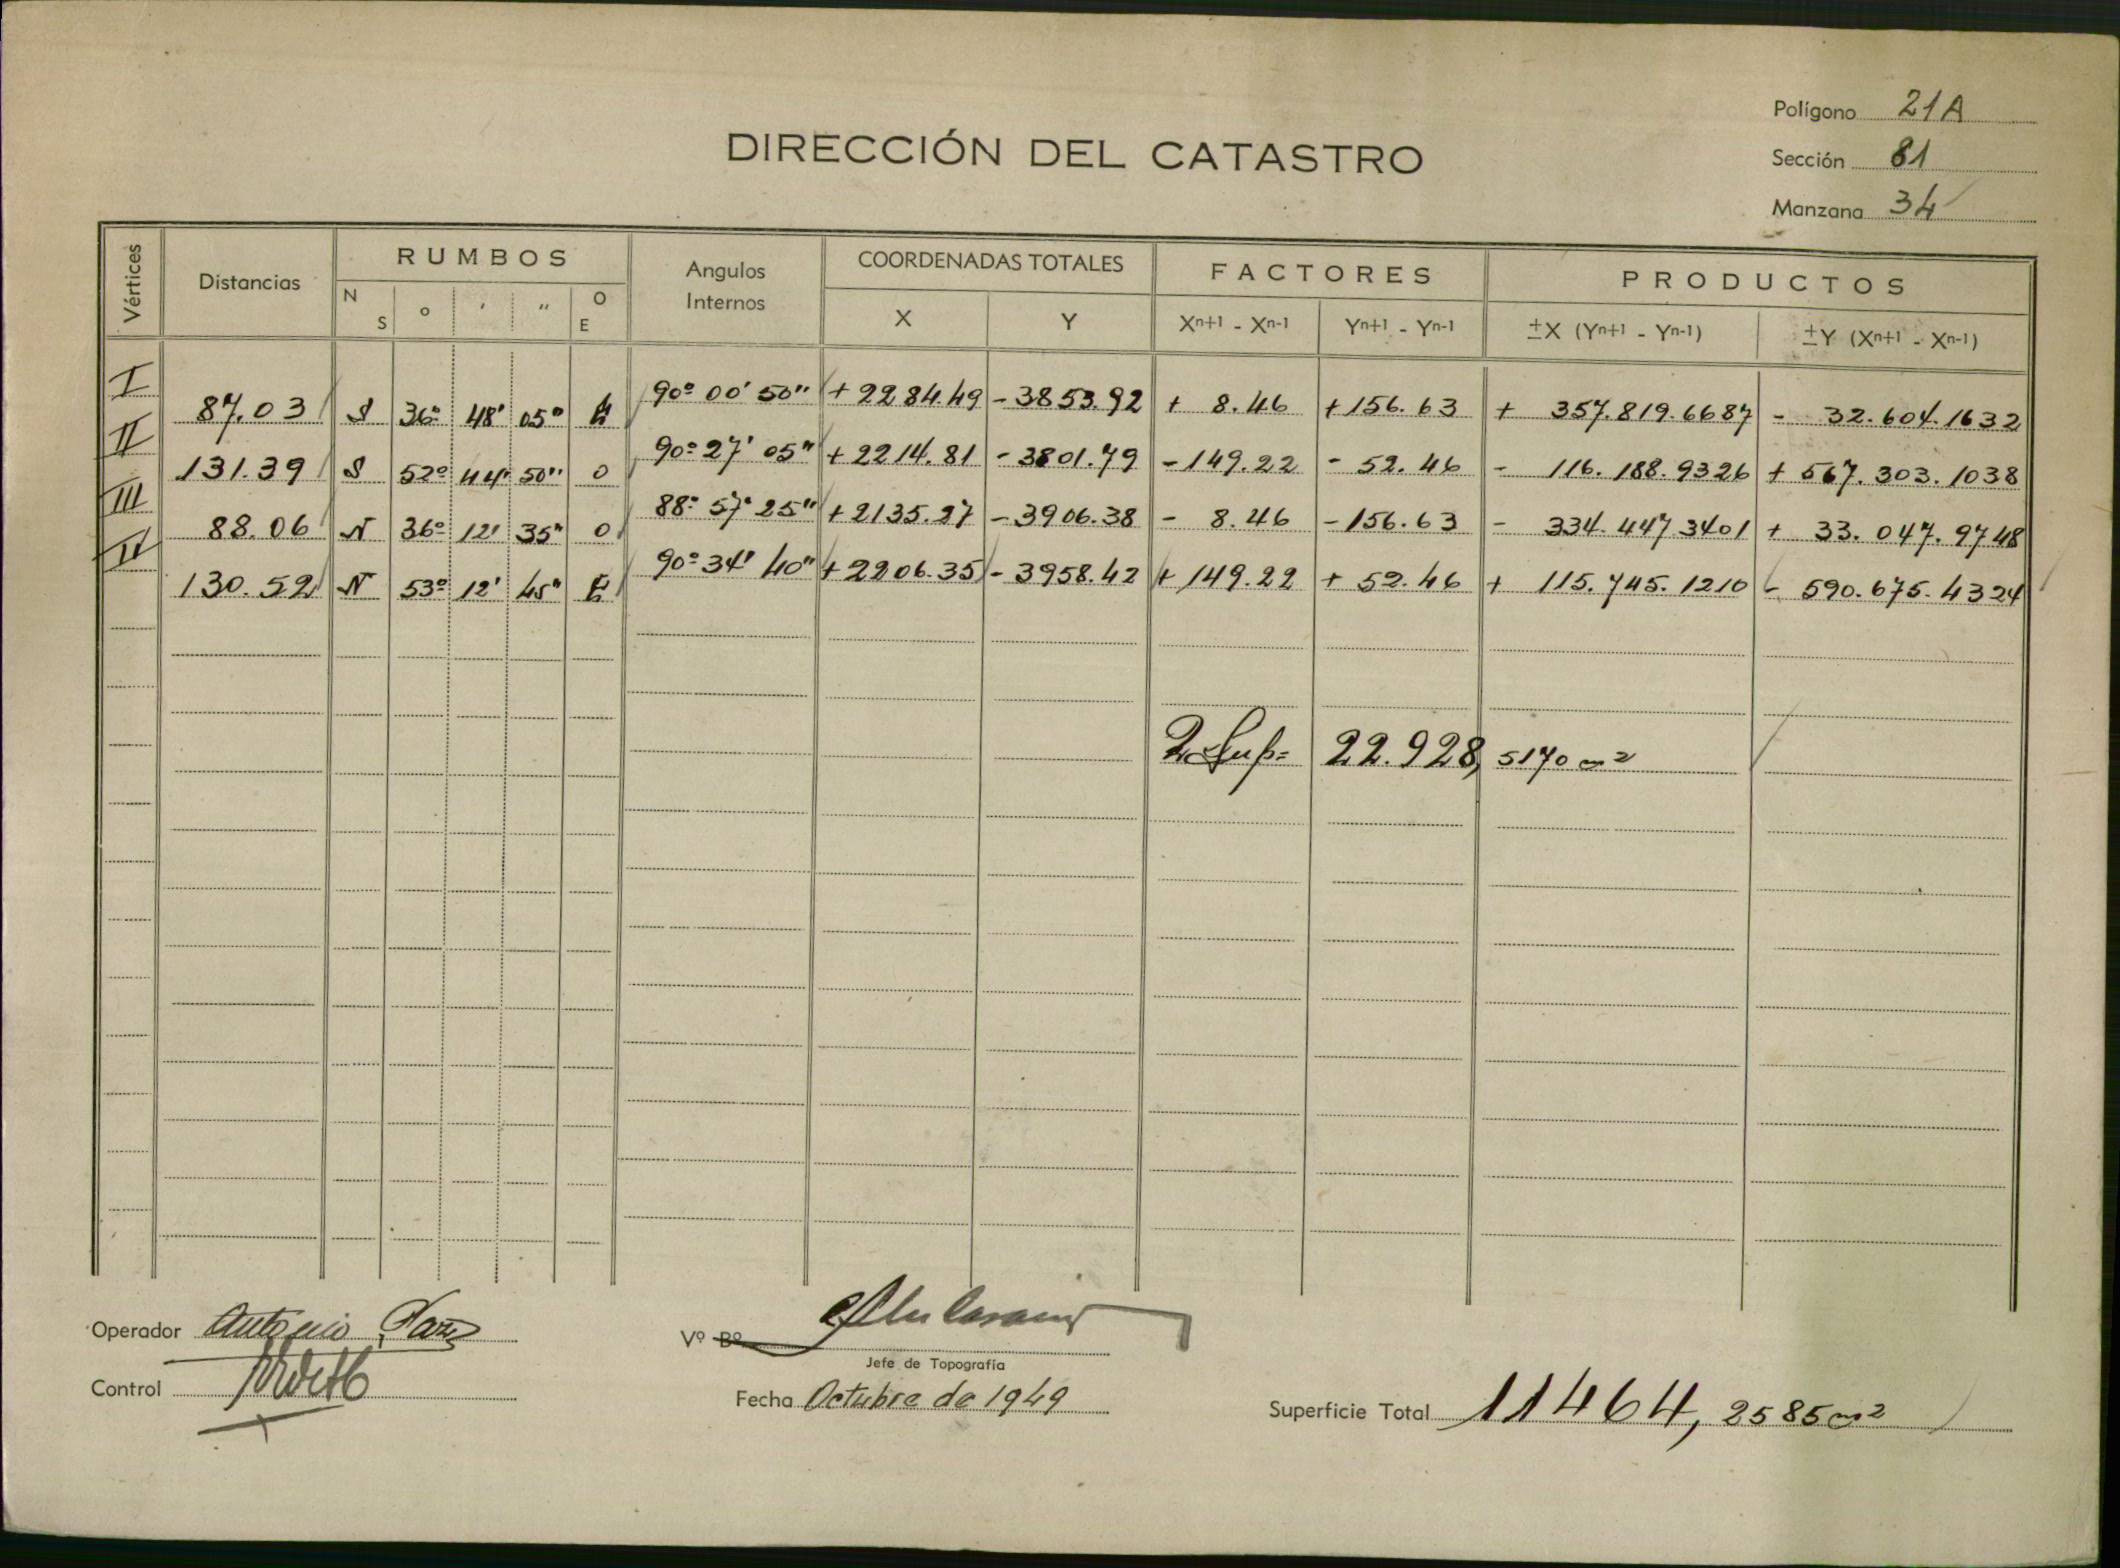 Polígono 21A
DIRECCIÓN DEL CATASTRO
Sección 81
Manzana 34
Vértices Distancias RUMBOS Angulos Internos COORDENADAS TOTALES FACTORES PRODUCTOS
N S ° ' " O E X Y Xn+1 - Xn-1 Yn+1 - Yn-1 ±X (Yn+1 - Yn-1) ±Y (Xn+1 - Xn-1)
I 90° 00' 50" +2284.49 -3853.92 + 8.46 +156.63 + 357.819.6687 - 32.604.1632
87.03 S 36° 48' 05" E
II 90° 27' 05" +2214.81 -3801.79 -149.22 - 52.46 - 116.188.9326 + 567.303.1038
131.39 S 52° 44' 50" O
III 88° 57' 25" +2135.27 -3906.38 - 8.46 -156.63 - 334.447.3401 + 33.047.9748
88.06 N 36° 12' 35" O
IV 90° 34' 40" +2206.35 -3958.42 +149.22 + 52.46 + 115.745.1210 - 590.675.4324
130.52 N 53° 12' 45" E
2 Sup= 22.928,5170 m2
Operador Antonio
Vº Bº
Jefe de Topografía
Control
Fecha Octubre de 1949
Superficie Total 11464,2585 m2